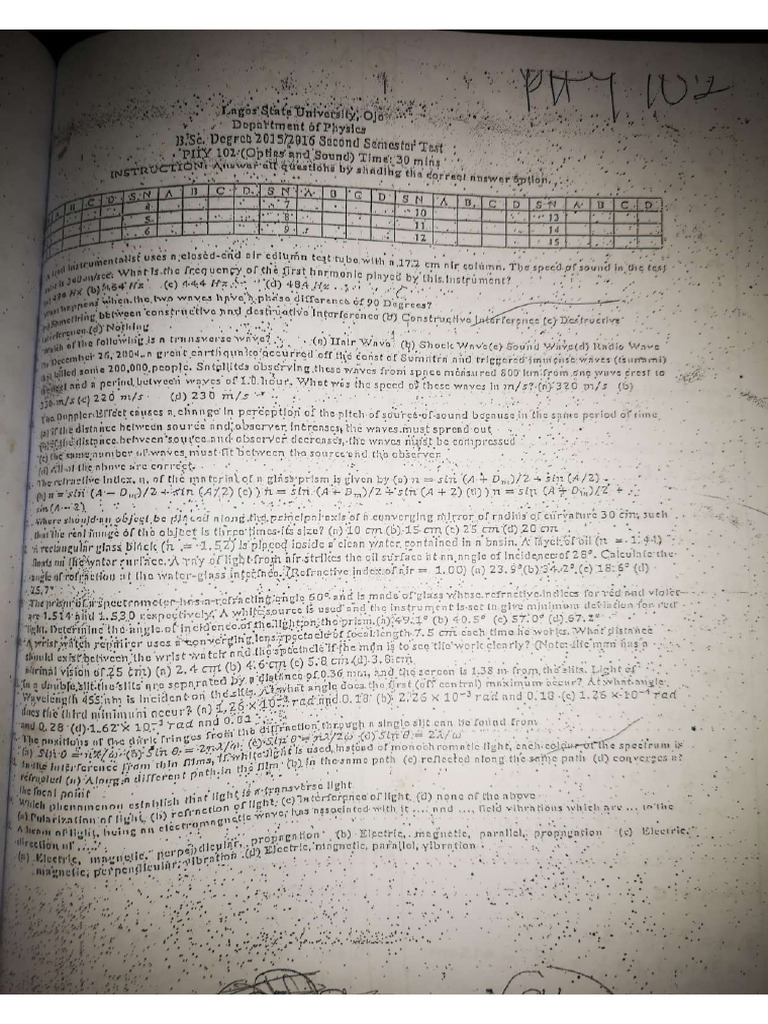 PHY 102
Lagos State University, Ojo
Department of Physics
B.Sc. Degree 2015/2016 Second Semester Test
PHY 102 (Optics and Sound) Time: 30 mins
INSTRUCTION: Answer all questions by shading the correct answer option.
A B C D S N A B C D S N A B C D S N A B C D S N A B C D
4 7 10 13
5 8 11 14
6 9 12 15
instrumentalist uses a closed-end air column test tube with a 17.2 cm air column. The speed of sound in the test
340 m/sec. What is the frequency of the first harmonic played by this instrument?
Hz (b) Hz (c) 444 Hz (d) 484 Hz
happens when the two waves have a phase difference of 90 Degrees?
Something between constructive and destructive Interference (b) Constructive Interference (c) Destructive
Interference (d) Nothing
Which of the following is a transverse wave? (a) Hair Wave (b) Shock Wave (c) Sound Wave (d) Radio Wave
December 26, 2004 a great earthquake occurred off the coast of Sumatra and triggered immense waves (tsunami)
killed some 200,000 people. Satellites observing these waves from space measured 800 km from one wave crest to
and a period between waves of 1.0 hour. What was the speed of these waves in m/s? (a) 320 m/s (b)
m/s (c) 220 m/s (d) 230 m/s
The Doppler Effect causes a change in perception of the pitch of source of sound because in the same period of time
(a) if the distance between source and observer increases, the waves must spread out
(b) if the distance between source and observer decreases, the waves must be compressed
(c) the same number of waves must fit between the source and the observer
(d) All of the above are correct.
The refractive index, n, of the material of a glass prism is given by (a) n = sin (A + Dm)/2 ÷ sin (A/2)
(b) n = sin (A − Dm)/2 ÷ sin (A/2) (c) ) n = sin (A + Dm)/2 ÷ sin (A + 2) (d) ) n = sin (A + Dm)/2 ÷
sin (A − 2)
Where should an object be placed along the principal axis of a converging mirror of radius of curvature 30 cm, such
that the real image of the object is three times its size? (a) 10 cm (b) 15 cm (c) 25 cm (d) 20 cm
A rectangular glass block (n = 1.52) is placed inside a clean water contained in a basin. A layer of oil (n = 1.44)
floats on the water surface. A ray of light from air strikes the oil surface at an angle of incidence of 28°. Calculate the
angle of refraction at the water-glass interface. (Refractive index of air = 1.00) (a) 23.9° (b) 34.2° (c) 18.6° (d)
The prism of a spectrometer has a refracting angle 60° and is made of glass whose refractive indices for red and violet
are 1.514 and 1.530 respectively. A white source is used and the instrument is set to give minimum deviation for red
light. Determine the angle of incidence of the light on the prism. (a) 49.1° (b) 40.5° (c) 57.0° (d) 67.2°
A wrist watch repairer uses a converging lens spectacle of focal length 7.5 cm each time he works. What distance
should exist between the wrist watch and the spectacle if the man is to see the work clearly? (Note: the man has a
normal vision of 25 cm) (a) 2.4 cm (b) 4.6 cm (c) 5.8 cm (d) 3.8 cm
In a double slit the slits are separated by a distance of 0.36 mm, and the screen is 1.38 m from the slits. Light of
Wavelength 455 nm is incident on the slits. At what angle does the first (off central) maximum occur? At what angle
does the third minimum occur? (a) 1.26 × 10⁻³ rad and 0.18 (b) 2.26 × 10⁻³ rad and 0.18 (c) 1.26 × 10⁻⁴ rad
and 0.28 (d) 1.62 × 10⁻³ rad and
The positions of the dark fringes from the diffraction through a single slit can be found from
(a) Sin θ = nλ/ω (b) Sin θ = 2nλ/ω (c) Sin θ = nλ/2ω (d) Sin θ = 2λ/ω
In the interference from thin films, if white light is used instead of monochromatic light, each colour of the spectrum is
refracted (a) Along a different path in the film (b) in the same path (c) reflected along the same path (d) converges at
the focal point
Which phenomenon establish that light is a transverse light
(a) Polarization of light, (b) refraction of light, (c) Interference of light, (d) none of the above
A beam of light, being an electromagnetic wave, has associated with it .... and ...., field vibrations which are ... to the
direction of ....
(a) Electric, magnetic, perpendicular, propagation (b) Electric, magnetic, parallel, propagation (c) Electric,
magnetic, perpendicular, vibration (d) Electric, magnetic, parallel, vibration